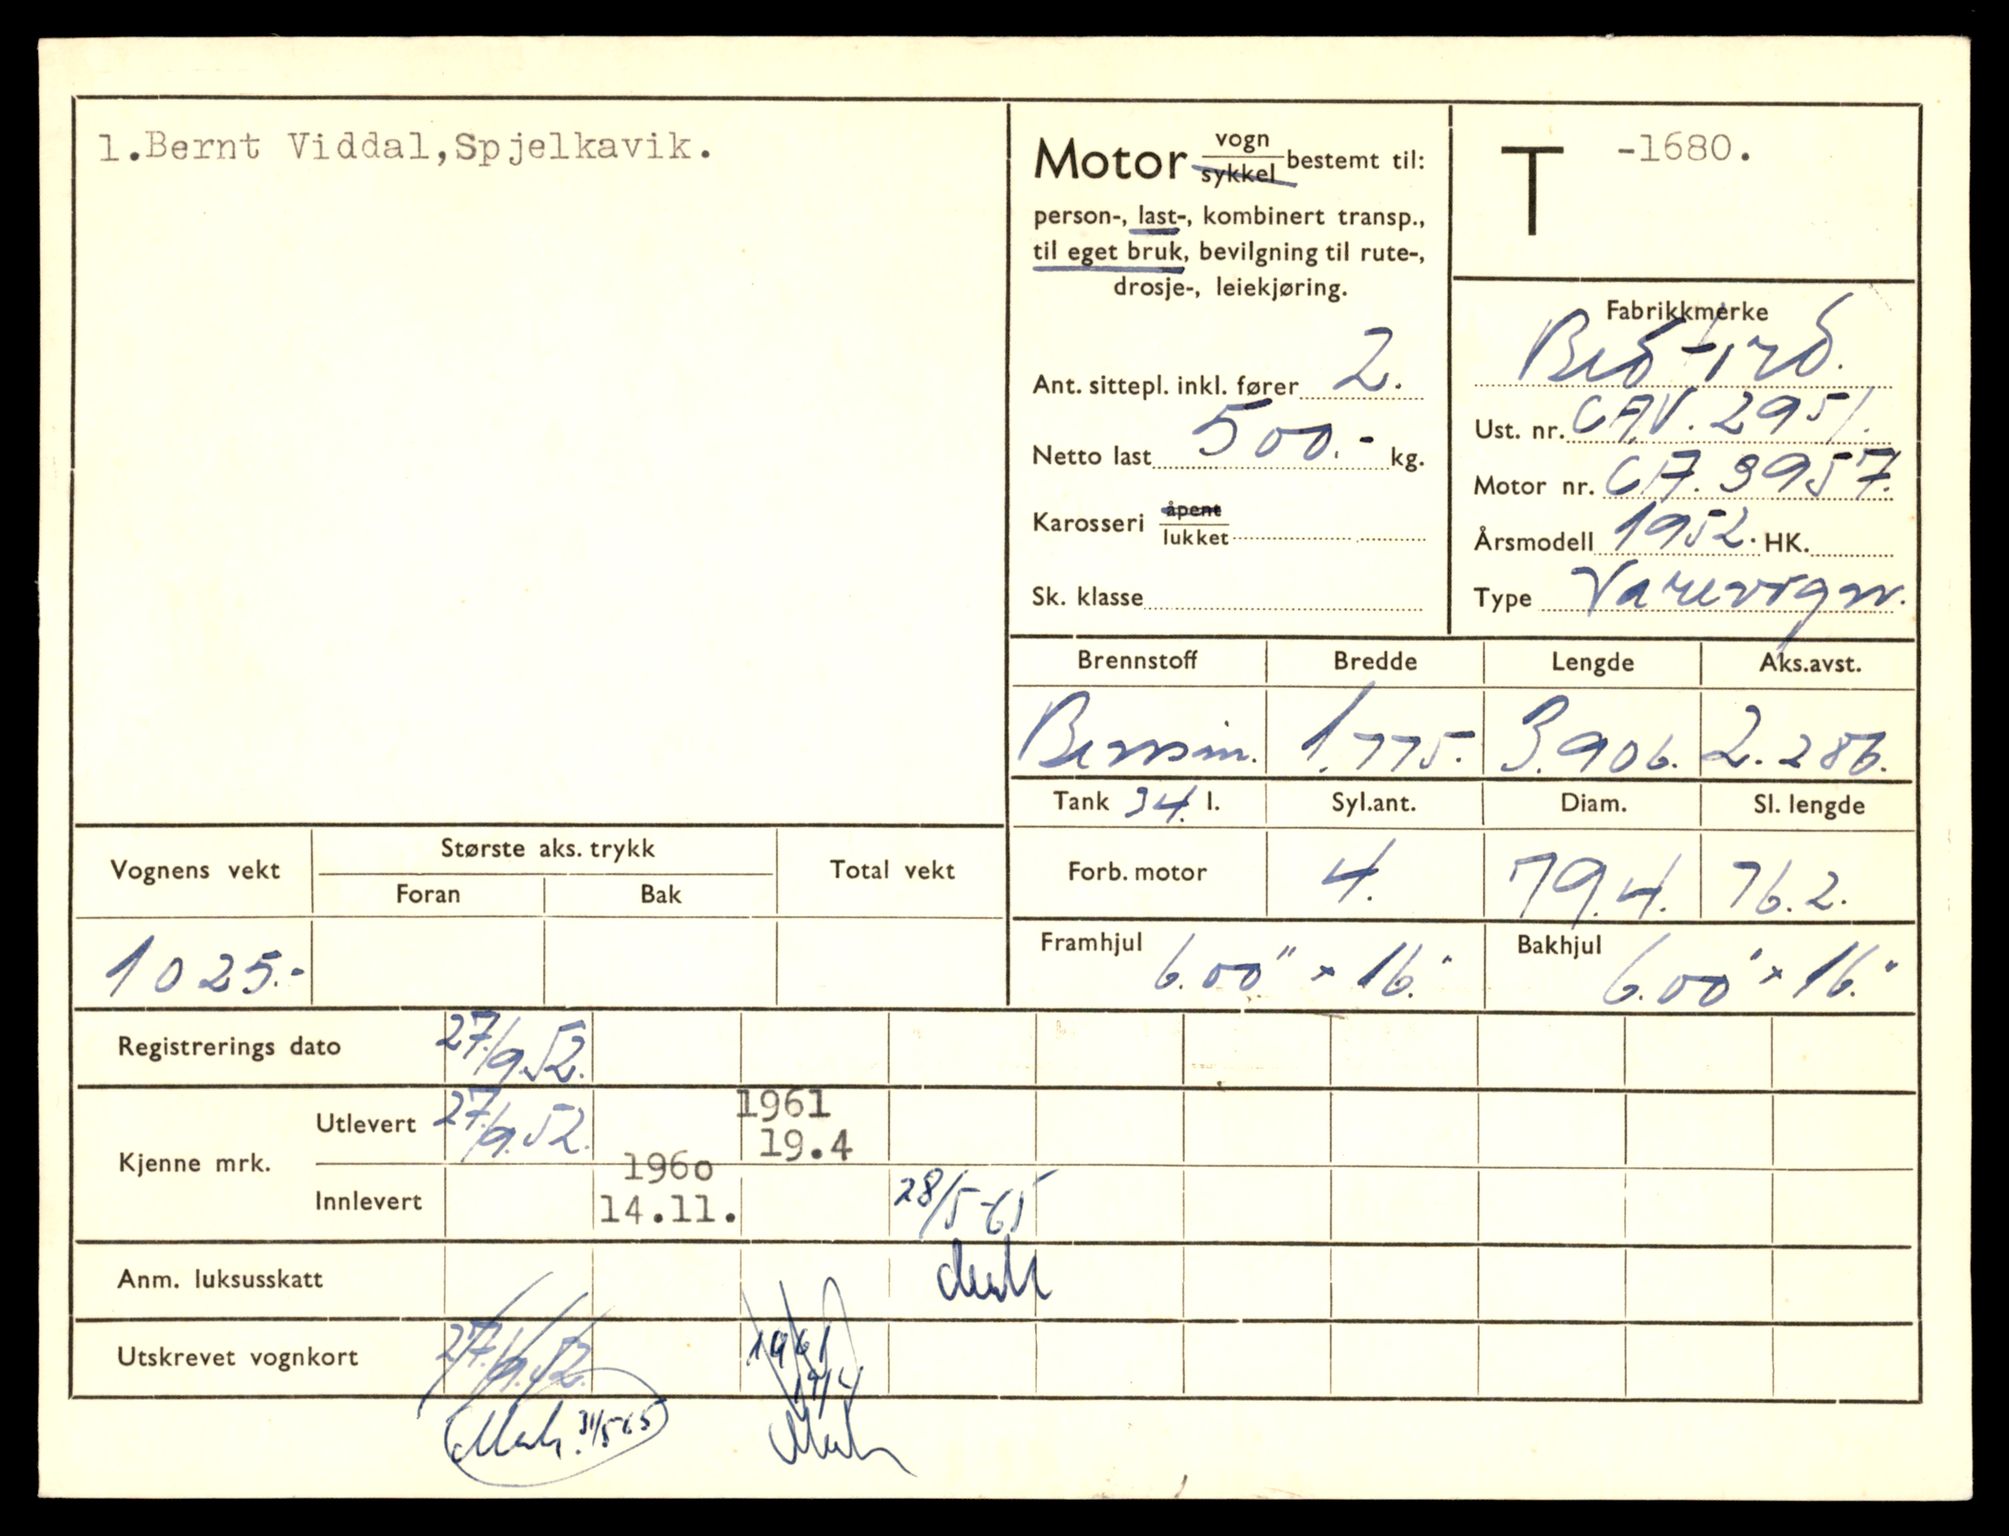 1.Bernt Viddal,Spjelkavik.
Motor vogn sykkel bestemt til:
person-, last-, kombinert transp.,
til eget bruk, bevilgning til rute-,
drosje-, leiekjøring.
Ant. sittepl. inkl. fører 2.
Netto last 500.- kg.
Karosseri åpent lukket
Sk. klasse
T -1680.
Fabrikkmerke
Bedford.
Ust. nr. CAV. 2951.
Motor nr. CA. 3957.
Årsmodell 1952. HK.
Type Varevogn.
Brennstoff Bredde Lengde Aks.avst.
Bensin. 1.775. 3.906. 2.286.
Tank 34. l. Syl.ant. Diam. Sl. lengde
Forb. motor 4. 79.4. 76.2.
Framhjul 6.00" x 16." Bakhjul 6.00" x 16."
Vognens vekt Største aks. trykk Total vekt
Foran Bak
1025.-
Registrerings dato 27/9.52.
Kjenne mrk. Utlevert 27/9.52. 1961 19.4
Innlevert 1960 14.11. 28/5-65
Anm. luksusskatt
Utskrevet vognkort 27/9.52. 1961 19/4
31/5-65